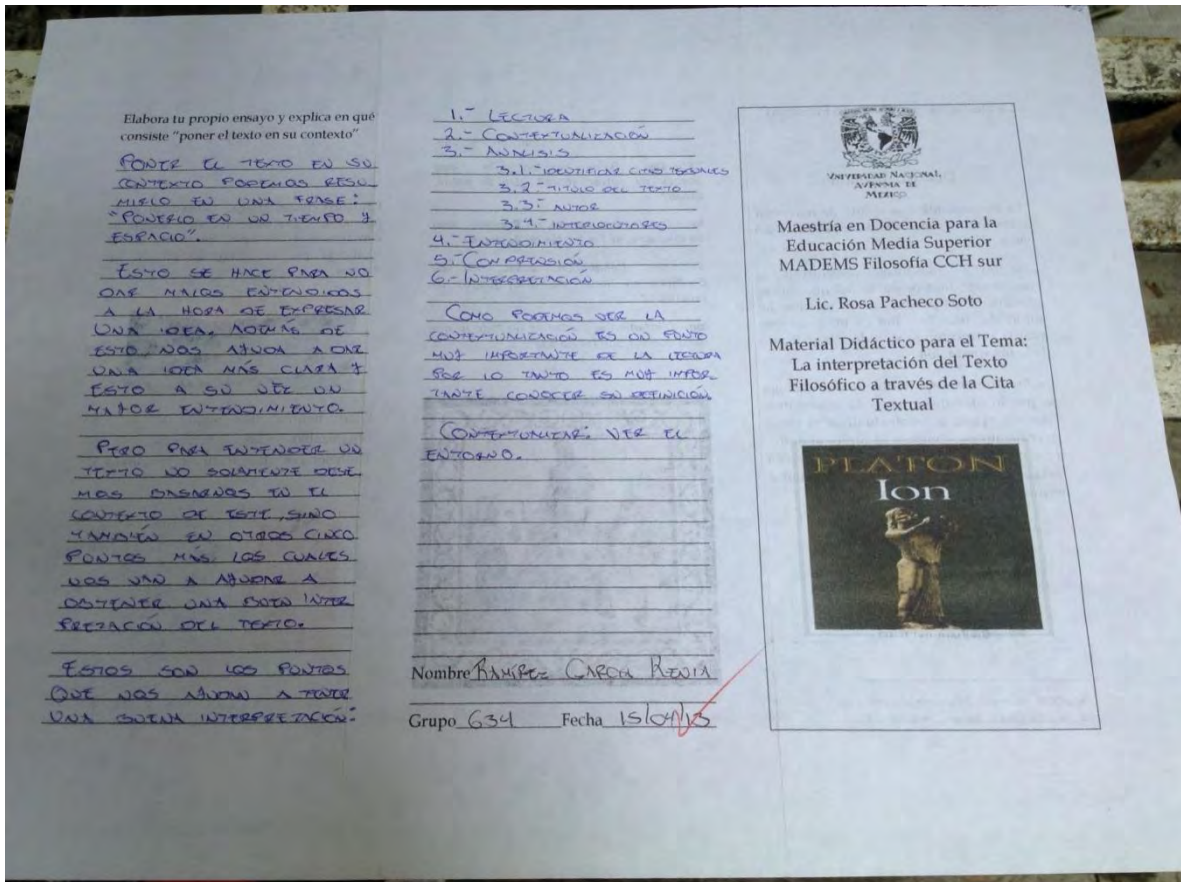 Elabora tu propio ensayo y explica en qué
consiste "poner el texto en su contexto"
PONER EL TEXTO EN SU
CONTEXTO PODEMOS RESU
MIRLO EN UNA FRASE:
"PONERLO EN UN TIEMPO Y
ESPACIO".
ESTO SE HACE PARA NO
DAR MALOS ENTENDIDOS
A LA HORA DE EXPRESAR
UNA IDEA. ADEMÁS DE
ESTO NOS AYUDA A DAR
UNA IDEA MÁS CLARA Y
ESTO A SU VEZ UN
MAYOR ENTENDIMIENTO.
PERO PARA ENTENDER UN
TEXTO NO SOLAMENTE DEBE
MOS BASARNOS EN EL
CONTEXTO DE ESTE, SINO
TAMBIÉN EN OTROS CINCO
PUNTOS MÁS, LOS CUALES
NOS VAN A AYUDAR A
OBTENER UNA BUEN INTER
PRETACIÓN DEL TEXTO.
ESTOS SON LOS PUNTOS
QUE NOS AYUDAN A TENER
UNA BUENA INTERPRETACIÓN:
1.- LECTURA
2.- CONTEXTUALIZACIÓN
3.- ANALISIS
3.1.- IDENTIFICAR CITAS TEXTUALES
3.2.- TITULO DEL TEXTO
3.3.- AUTOR
3.4.- INTERLOCUTORES
4.- ENTENDIMIENTO
5.- COMPRENSIÓN
6.- INTERPRETACIÓN
COMO PODEMOS VER LA
CONTEXTUALIZACIÓN ES UN PUNTO
MUY IMPORTANTE DE LA LECTURA
POR LO TANTO ES MUY IMPOR
TANTE CONOCER SU DEFINICIÓN
CONTEXTUALIZAR: VER EL
ENTORNO.
Nombre RAMÍREZ GARCÍA KENIA
Grupo 634 Fecha 15/04/13
VNIVERSIDAD NACIONAL
AVTÓNOMA DE
MEXICO
Maestría en Docencia para la
Educación Media Superior
MADEMS Filosofía CCH sur
Lic. Rosa Pacheco Soto
Material Didáctico para el Tema:
La interpretación del Texto
Filosófico a través de la Cita
Textual
PLATÓN
Ion